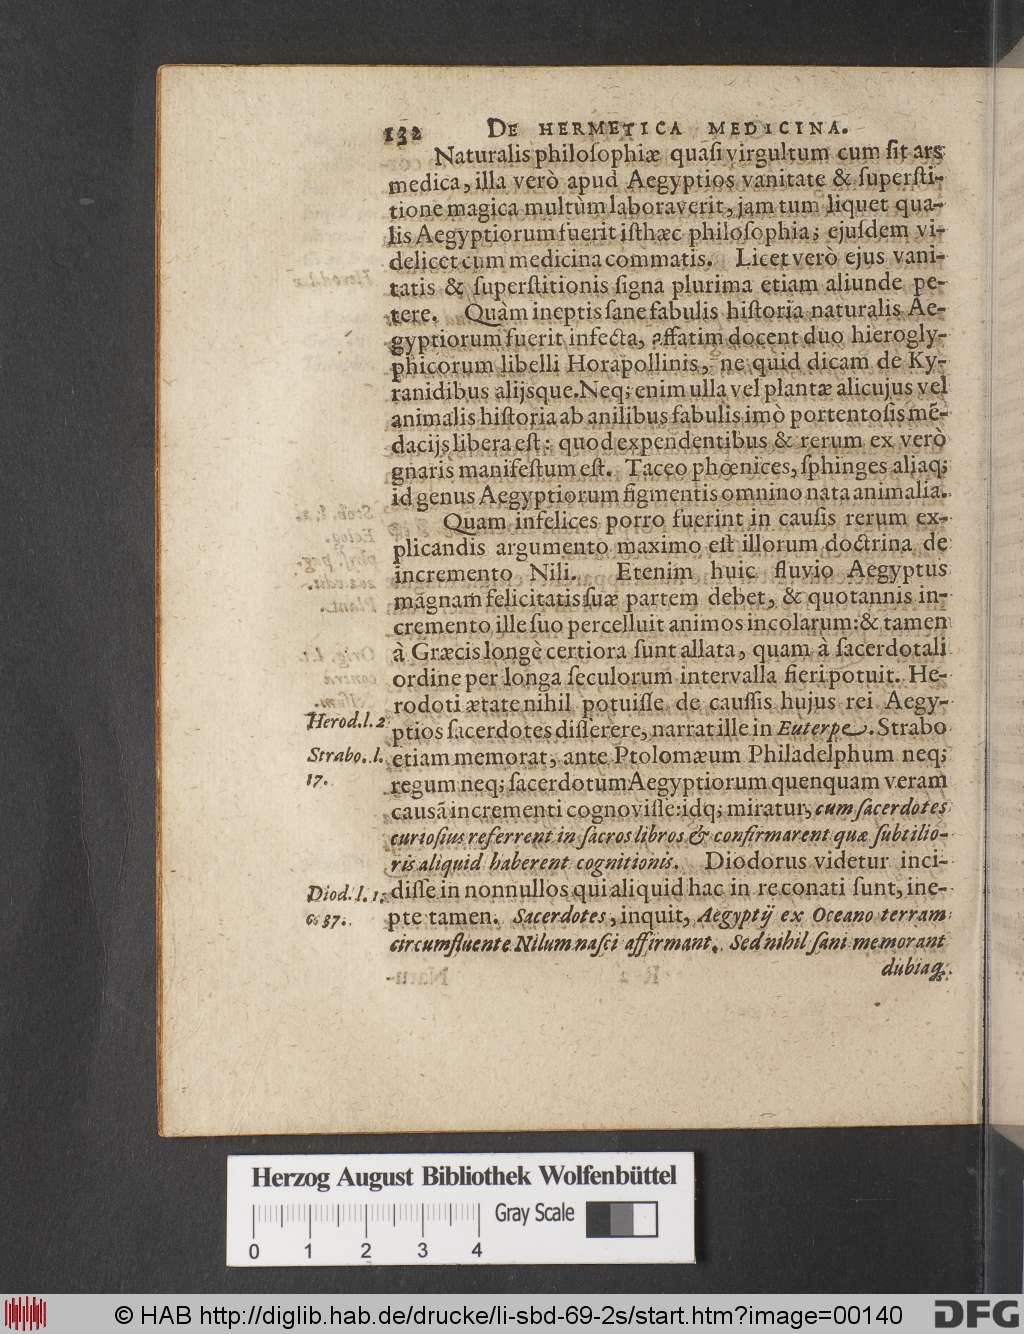 132 DE HERMETICA MEDICINA.
Naturalis philoſophiæ quaſi virgultum cum ſit ars
medica, illa verò apud Aegyptios vanitate & ſuperſti-
tione magica multùm laboraverit, jam tum liquet qua-
lis Aegyptiorum fuerit iſthæc philoſophia; ejuſdem vi-
delicet cum medicina commatis. Licet verò ejus vani-
tatis & ſuperſtitionis ſigna plurima etiam aliunde pe-
tere. Quàm ineptis ſane fabulis hiſtoria naturalis Ae-
gyptiorum fuerit infecta, affatim docent duo hierogly-
phicorum libelli Horapollinis, ne quid dicam de Ky-
ranidibus alijsque. Neq; enim ulla vel plantæ alicujus vel
animalis hiſtoria ab anilibus fabulis imò portentoſis mē-
dacijs libera eſt: quod expendentibus & rerum ex verò
gnaris manifeſtum eſt. Taceo phœnices, ſphinges aliaq;
id genus Aegyptiorum figmentis omnino nata animalia.
Quam infelices porro fuerint in cauſis rerum ex-
plicandis argumento maximo eſt illorum doctrina de
incremento Nili. Etenim huic fluvio Aegyptus
magnam felicitatis ſuæ partem debet, & quotannis in-
cremento ille ſuo percelluit animos incolarum: & tamen
à Græcis longè certiora ſunt allata, quam à ſacerdotali
ordine per longa ſeculorum intervalla fieri potuit. He-
rodoti ætate nihil potuiſſe de cauſſis hujus rei Aegy-
Herod. l. 2
ptios ſacerdotes diſſerere, narrat ille in Euterpe. Strabo
Strabo. l.
17.
etiam memorat, ante Ptolomæum Philadelphum neq;
regum neq; ſacerdotum Aegyptiorum quenquam veram
causã incrementi cognoviſſe: idq; miratur, cum ſacerdotes
curioſius referrent in ſacros libros & confirmarent quæ ſubtilio-
ris aliquid haberent cognitionis. Diodorus videtur inci-
Diod. l. 1.
c. 37.
diſſe in nonnullos qui aliquid hac in re conati ſunt, ine-
pte tamen. Sacerdotes, inquit, Aegyptij ex Oceano terram
circumfluente Nilum naſci affirmant. Sed nihil ſani memorant
dubiaq;
Herzog August Bibliothek Wolfenbüttel
Gray Scale
0 1 2 3 4
© HAB http://diglib.hab.de/drucke/li-sbd-69-2s/start.htm?image=00140
DFG